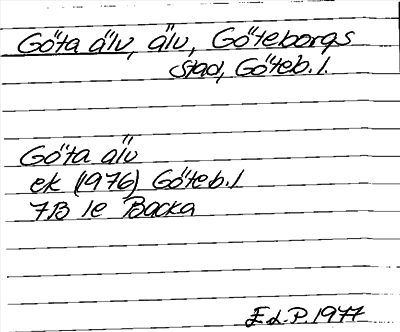 Göta älv, älv, Göteborgs
stad, Göteb. l.
Göta älv
ek (1976) Göteb. l
7B 1e Backa
E.L.P. 1977